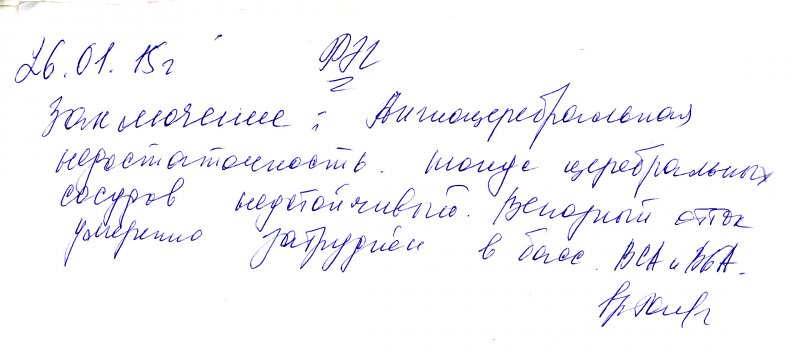 26.01.15г РЭГ
Заключение: Ангиоцеребральная
недостаточность. Тонус церебральных
сосудов неустойчивый. Венозный отток
умеренно затруднён в басс. ВСА и ВБА.
Вр